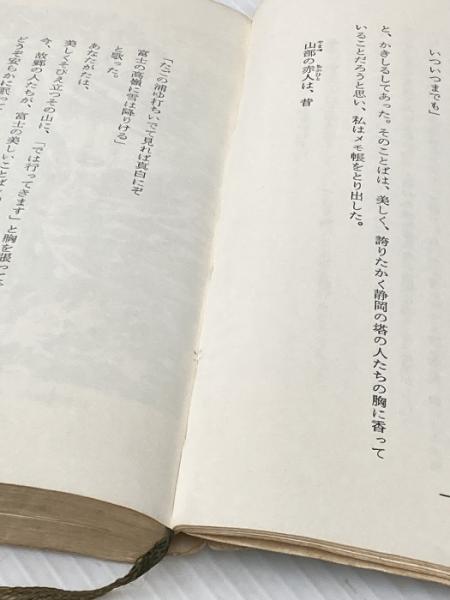 いついつまでも」
と、かきしるしてあった。そのことばは、美しく、誇りたかく静岡の塔の人たちの胸に香って
いることだろうと思い、私はメモ帳をとり出した。
山部の赤人は、昔
「たごの浦ゆ打ちいでて見れば真白にぞ
富士の高嶺に雪は降りける」
と歌った。
あなたがたは、
美しくそびえ立つその山に、「では行ってきます」と胸を張って
今、故郷の人たちが、富士の美しいことば
どうぞ安らかに眠って